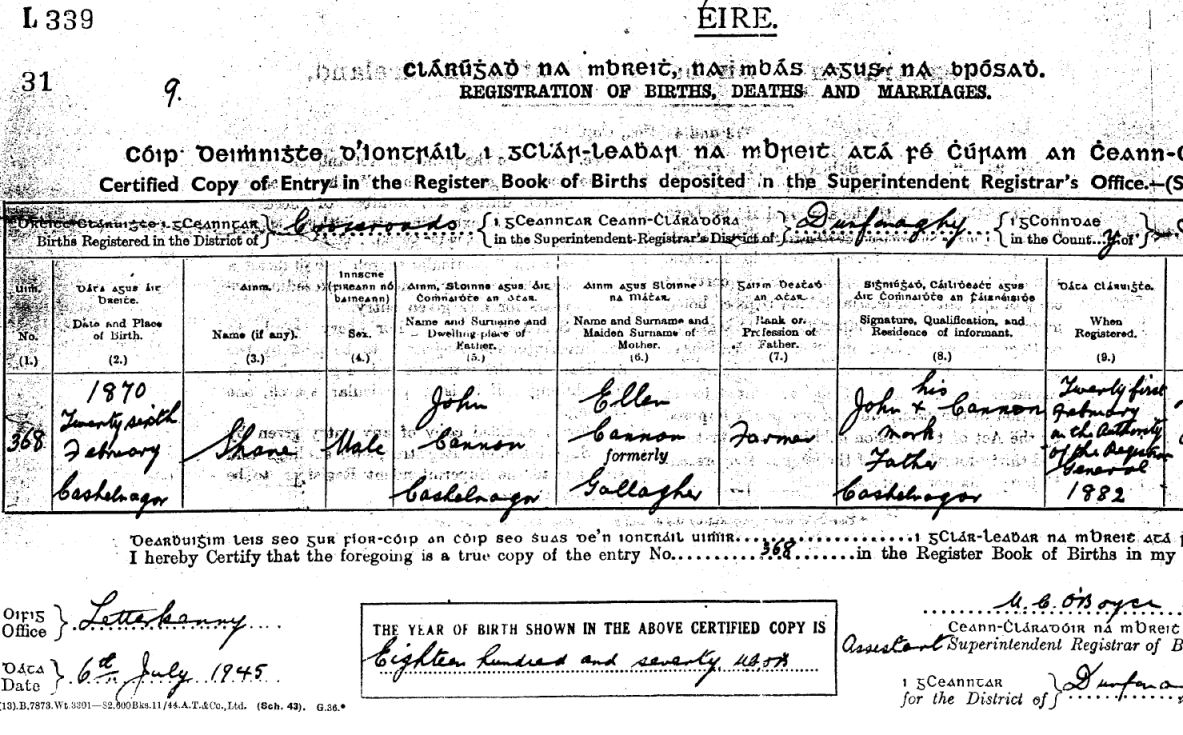 L 339
ÉIRE.
31
9.
CLÁRÚĠAḊ NA MBREIṪ, NA MBÁS AGUS NA BPÓSAḊ.
REGISTRATION OF BIRTHS, DEATHS AND MARRIAGES.
Cóip Deiṁniġṫe d'Iontráil i gClár-leaḃar na mBreiṫ atá fé Ċúram an Ċeann-C
Certified Copy of Entry in the Register Book of Births deposited in the Superintendent Registrar's Office.—(S
i gCeanntar
Births Registered in the District of } Crossroads
{ i gCeanntar Ceann-Ċláraḋóra
in the Superintendent-Registrar's District of } Dunfanaghy
{ i gConndae
in the County of }
Uiṁ.
No.
(1.)
Dáta agus Áit Breiṫe.
Date and Place of Birth.
(2.)
Ainm.
Name (if any).
(3.)
Innscne (fireann nó baineann)
Sex.
(4.)
Ainm, Sloinne agus Áit Coṁnaiḋṫe an Aṫar.
Name and Surname and Dwelling-place of Father.
(5.)
Ainm agus Sloinne na Máṫar.
Name and Surname and Maiden Surname of Mother.
(6.)
Gairm Beaṫaḋ an Aṫar.
Rank or Profession of Father.
(7.)
Síġniúġaḋ, Cáiliḋeaċt agus Áit Coṁnaiḋṫe an Ḟáisnéisiḋe
Signature, Qualification, and Residence of informant.
(8.)
Dáta Cláruiġṫe.
When Registered.
(9.)
368
1870
Twenty sixth
February
Cashelnagor
Shane
Male
John
Cannon
Cashelnagor
Ellen
Cannon
formerly
Gallagher
Farmer
his
John x Cannon
mark
Father
Cashelnagor
Twenty first
February
on the authority
of the Registrar
General
1882
Dearḃuiġim leis seo gur fíor-ċóip an ċóip seo ṡuas de'n iontráil uiṁir.....................i gClár-leaḃar na mBreiṫ atá
I hereby Certify that the foregoing is a true copy of the entry No. 368 in the Register Book of Births in my
Oifig
Office } Letterkenny
Dáta
Date } 6th July 1945
THE YEAR OF BIRTH SHOWN IN THE ABOVE CERTIFIED COPY IS
Eighteen hundred and seventy
Ceann-Ċláraḋóir na mBreiṫ
Assistant Superintendent Registrar of B
i gCeanntar
for the District of } Dunfana
(13).B.7873.Wt.3391—82,600Bks.11/44.A.T.&Co.,Ltd. (Sch. 43). G.36.*